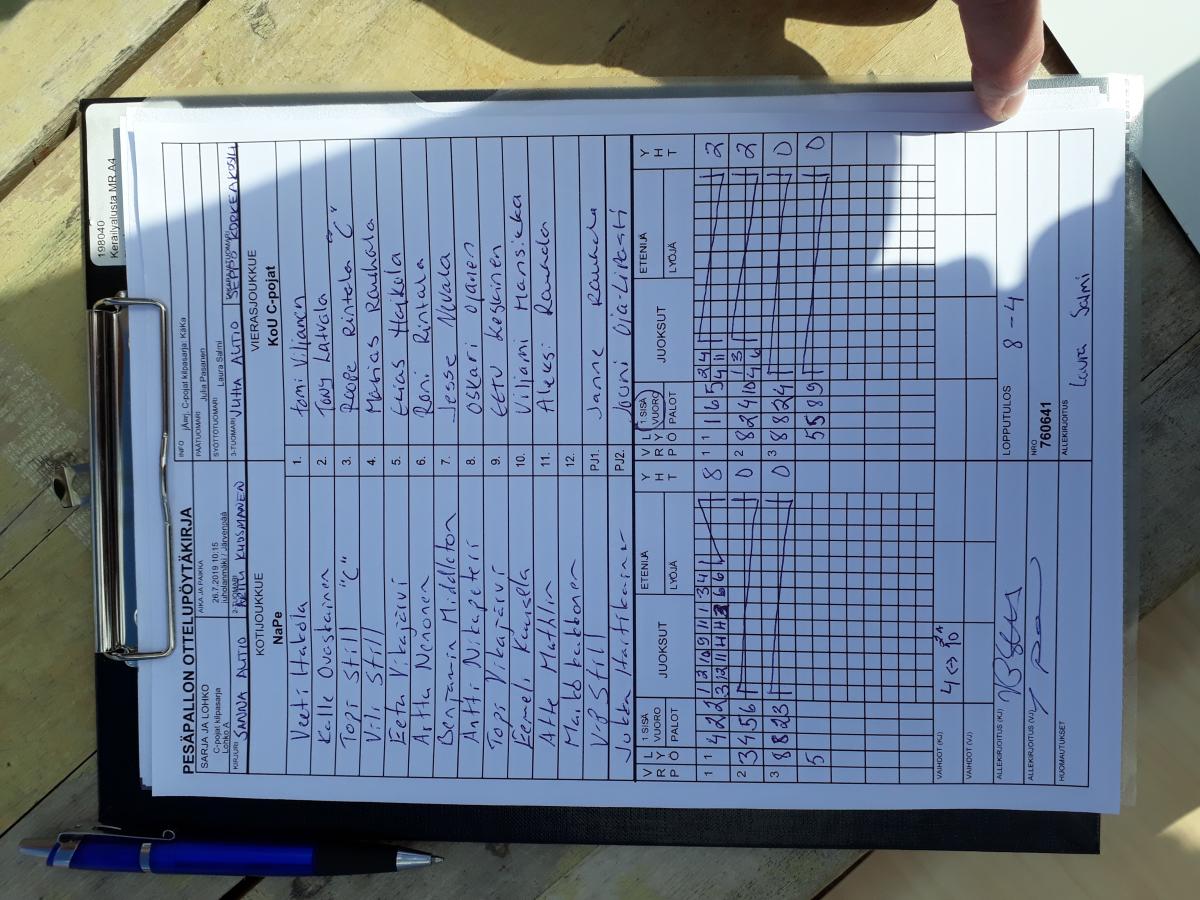 198040
Keräilyalusta MR.A4
PESÄPALLON OTTELUPÖYTÄKIRJA
SARJA JA LOHKO
C-pojat kilpasarja
Lohko A
AIKA JA PAIKKA
26.7.2019 10:15
Juholanmäki / Järvenpää
INFO jÄrj. C-pojat kilpasarja: KäKa
PÄÄTUOMARI Julia Pasanen
SYÖTTÖTUOMARI Laura Salmi
KIRJURI SANNA AUTIO
2-TUOMARI KUOSMANEN
3-TUOMARI JUHA AUTIO
SEPPO
KOTIJOUKKUE
NaPe
VIERASJOUKKUE
KoU C-pojat
Veeti Hakola 1. Tomi Viljanen
Kalle Ovaskainen 2. Tony Latvala
Topi Still "C" 3. Roope Rintala "C"
Vili Still 4. Matias Rauhala
Eeta Vikajärvi 5. Elias Haikola
Arttu Nenonen 6. Roni Rintala
Benjamin Middleton 7. Jesse
Antti Nikupeteri 8. Oskari Ojanen
Topi Vikajärvi 9. Eetu Keskinen
Eemeli 10. Viljami Mansikka
Atte Mathlin 11. Aleksi Rauhala
12.
VP Still PJ1. Janne Rauhala
Jukka Hartikainen PJ2. Jouni
V R P L Y Ö 1 SISÄ VUORO PALOT JUOKSUT ETENIJÄ LYÖJÄ Y H T
V R P L Y Ö 1 SISÄ VUORO PALOT JUOKSUT ETENIJÄ LYÖJÄ Y H T
1 1 4 2 2 1 2 10 9 11 1 3 4 8
3 12 11 4 4 6 6
1 1 1 6 5 2 4 2
4 11
2 3 4 5 6 0
2 8 2 4 10 1 3 2
4 6
3 8 8 2 3 0
3 8 8 2 4 0
5
5 5 8 9 0
VAIHDOT (KJ) 4 <-> 10
VAIHDOT (VJ)
ALLEKIRJOITUS (KJ)
ALLEKIRJOITUS (VJ)
HUOMAUTUKSET
LOPPUTULOS 8 - 4
NRO
760641
ALLEKIRJOITUS
Laura Salmi